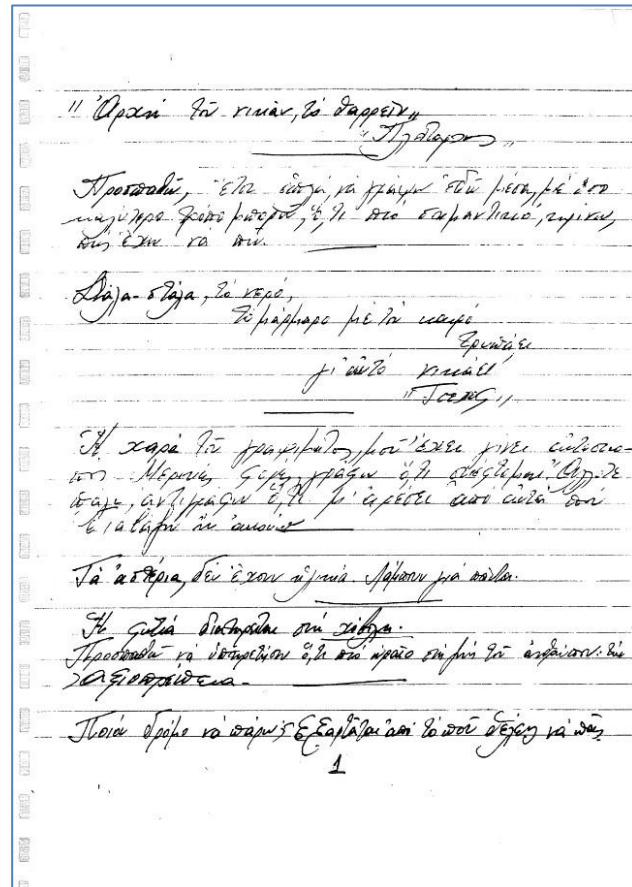 "Ἀρχή τοῦ νικᾶν, τό θαρρεῖν"
"Πλούταρχος"
Προσπαθῶ, ἔτσι ἁπλά, νά γράψω ἐδῶ μέσα, μέ ὅσο
καλύτερο τρόπο μπορῶ, ὅ,τι πιό σημαντικό,
πώς ἔχω νά πῶ.
Στάλα-στάλα, τό νερό,
τό μάρμαρο μέ τόν καιρό
τρυπάει
γι' αὐτό νικάει
Ἡ χαρά τοῦ γραψίματος, μοῦ ἔχει γίνει
Μερικές φορές γράφω ὅ,τι σκέφτομαι. Ἄλλοτε
πάλι, ἀντιγράφω ὅ,τι μ' ἀρέσει ἀπό αὐτά πού
διαβάζω ἤ ἀκούω
Τά ἀστέρια, δέν ἔχουν ἡλικία. Λάμπουν γιά πάντα.
Ἡ φωτιά διατηρεῖται στή χόβολη.
Προσπαθῶ νά ὑπηρετήσω ὅ,τι πιό ὡραῖο στή ζωή τοῦ ἀνθρώπου: τήν
Ἀξιοπρέπεια.
Ποιό δρόμο νά πάρω; Ἐξαρτᾶται ἀπό τό ποῦ θέλεις νά πᾶς
1